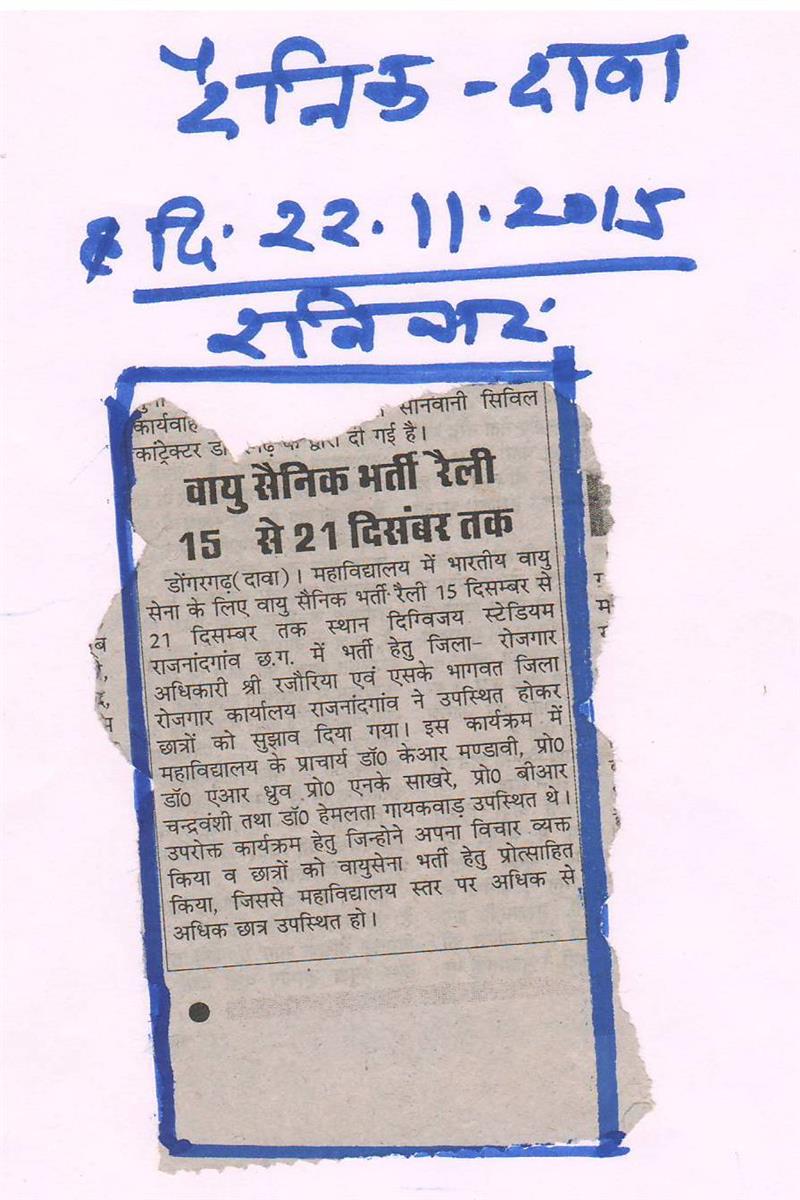 दैनिक - दावा
दि. 22.11.2015
रविवार
सानवानी सिविल
कार्यवाह
कांट्रेक्टर डॉ के द्वारा दी गई है।
वायु सैनिक भर्ती रैली
15 से 21 दिसंबर तक
डोंगरगढ़(दावा)। महाविद्यालय में भारतीय वायु
सेना के लिए वायु सैनिक भर्ती रैली 15 दिसम्बर से
21 दिसम्बर तक स्थान दिग्विजय स्टेडियम
राजनांदगांव छ.ग. में भर्ती हेतु जिला– रोजगार
अधिकारी श्री रजौरिया एवं एसके भागवत जिला
रोजगार कार्यालय राजनांदगांव ने उपस्थित होकर
छात्रों को सुझाव दिया गया। इस कार्यक्रम में
महाविद्यालय के प्राचार्य डॉ0 केआर मण्डावी, प्रो0
डॉ0 एआर ध्रुव प्रो0 एनके साखरे, प्रो0 बीआर
चन्द्रवंशी तथा डॉ0 हेमलता गायकवाड़ उपस्थित थे।
उपरोक्त कार्यक्रम हेतु जिन्होने अपना विचार व्यक्त
किया व छात्रों को वायुसेना भर्ती हेतु प्रोत्साहित
किया, जिससे महाविद्यालय स्तर पर अधिक से
अधिक छात्र उपस्थित हो।